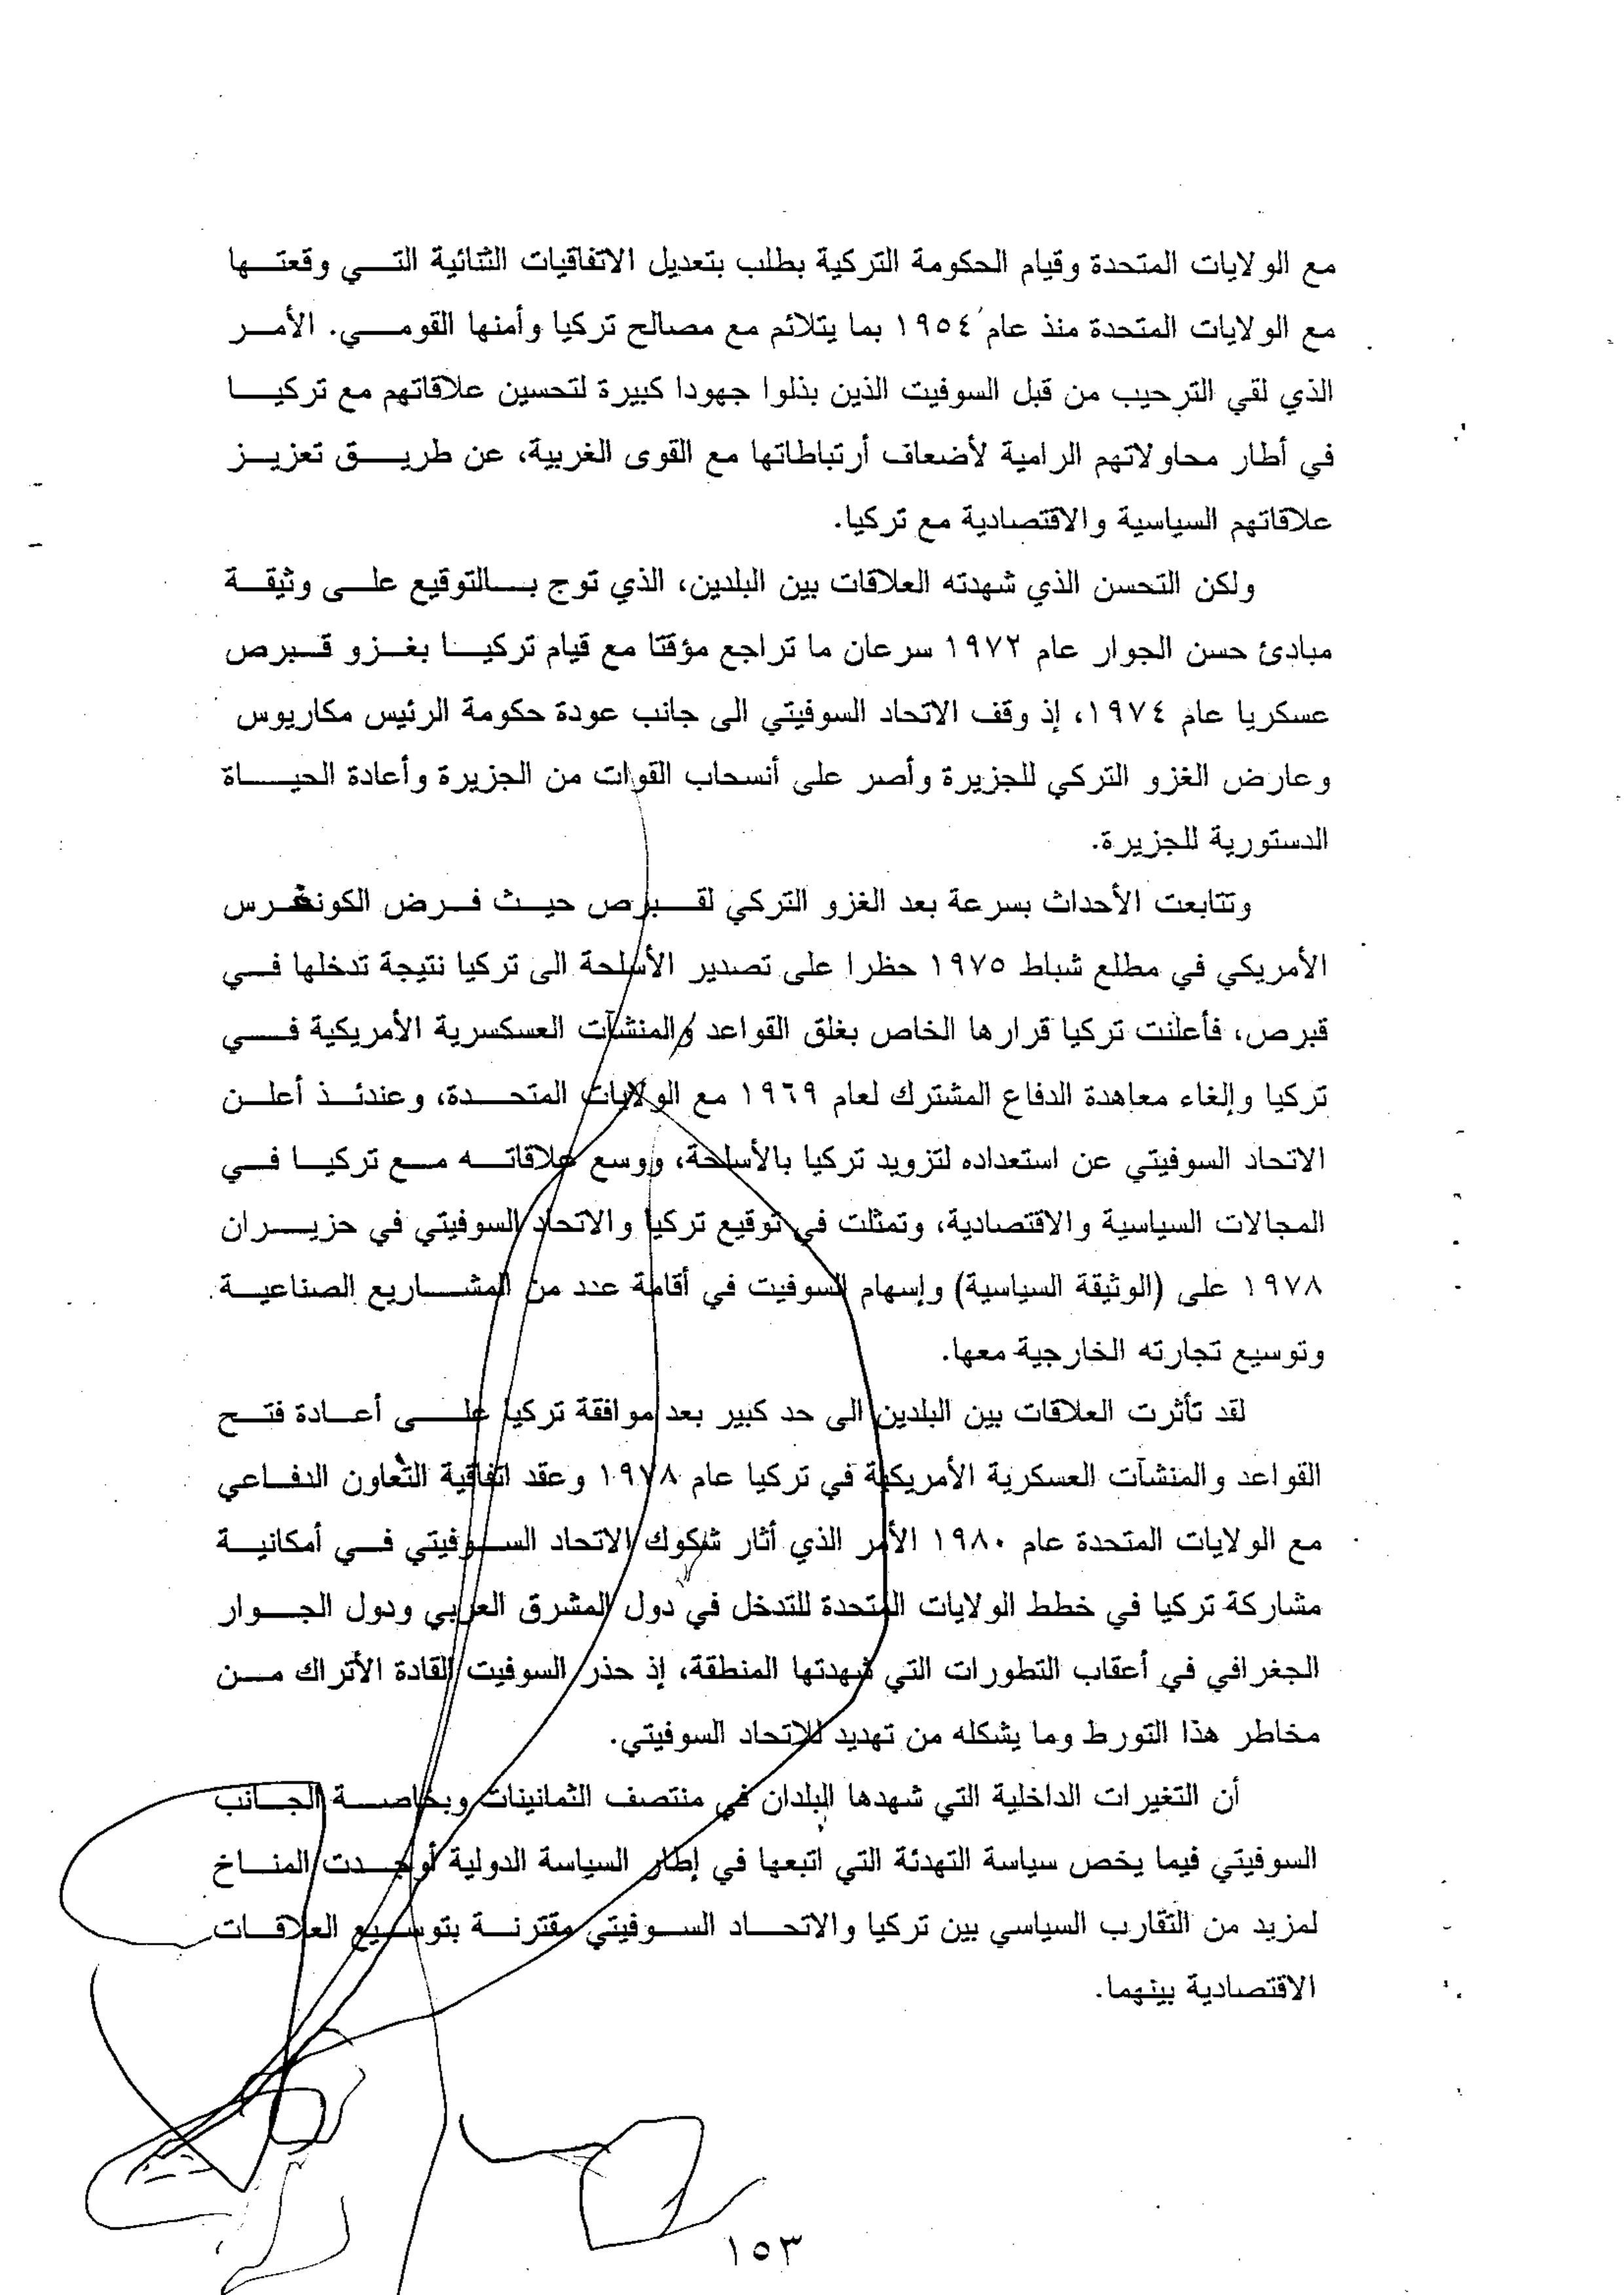 مع الولايات المتحدة وقيام الحكومة التركية بطلب بتعديل الاتفاقيات الثنائية التي وقعتها
مع الولايات المتحدة منذ عام ١٩٥٤ بما يتلائم مع مصالح تركيا وأمنها القومي. الأمر
الذي لقي الترحيب من قبل السوفيت الذين بذلوا جهودا كبيرة لتحسين علاقاتهم مع تركيا
في أطار محاولاتهم الرامية لأضعاف أرتباطاتها مع القوى الغربية، عن طريق تعزيز
علاقاتهم السياسية والاقتصادية مع تركيا.
ولكن التحسن الذي شهدته العلاقات بين البلدين، الذي توج بالتوقيع على وثيقة
مبادئ حسن الجوار عام ١٩٧٢ سرعان ما تراجع مؤقتا مع قيام تركيا بغزو قبرص
عسكريا عام ١٩٧٤، إذ وقف الاتحاد السوفيتي الى جانب عودة حكومة الرئيس مكاريوس
وعارض الغزو التركي للجزيرة وأصر على أنسحاب القوات من الجزيرة وأعادة الحياة
الدستورية للجزيرة.
وتتابعت الأحداث بسرعة بعد الغزو التركي لقبرص حيث فرض الكونغرس
الأمريكي في مطلع شباط ١٩٧٥ حظرا على تصدير الأسلحة الى تركيا نتيجة تدخلها في
قبرص، فأعلنت تركيا قرارها الخاص بغلق القواعد والمنشآت العسكسرية الأمريكية في
تركيا وإلغاء معاهدة الدفاع المشترك لعام ١٩٦٩ مع الولايات المتحدة، وعندئذ أعلن
الاتحاد السوفيتي عن استعداده لتزويد تركيا بالأسلحة، ووسع علاقاته مع تركيا في
المجالات السياسية والاقتصادية، وتمثلت في توقيع تركيا والاتحاد السوفيتي في حزيران
١٩٧٨ على (الوثيقة السياسية) وإسهام السوفيت في أقامة عدد من المشاريع الصناعية
وتوسيع تجارته الخارجية معها.
لقد تأثرت العلاقات بين البلدين الى حد كبير بعد موافقة تركيا على أعادة فتح
القواعد والمنشآت العسكرية الأمريكية في تركيا عام ١٩٧٨ وعقد اتفاقية التعاون الدفاعي
مع الولايات المتحدة عام ١٩٨٠ الأمر الذي أثار شكوك الاتحاد السوفيتي في أمكانية
مشاركة تركيا في خطط الولايات المتحدة للتدخل في دول المشرق العربي ودول الجوار
الجغرافي في أعقاب التطورات التي شهدتها المنطقة، إذ حذر السوفيت القادة الأتراك من
مخاطر هذا التورط وما يشكله من تهديد للاتحاد السوفيتي.
أن التغيرات الداخلية التي شهدها البلدان في منتصف الثمانينات وبخاصة الجانب
السوفيتي فيما يخص سياسة التهدئة التي اتبعها في إطار السياسة الدولية أوجدت المناخ
لمزيد من التقارب السياسي بين تركيا والاتحاد السوفيتي مقترنة بتوسيع العلاقات
الاقتصادية بينهما.
١٥٣